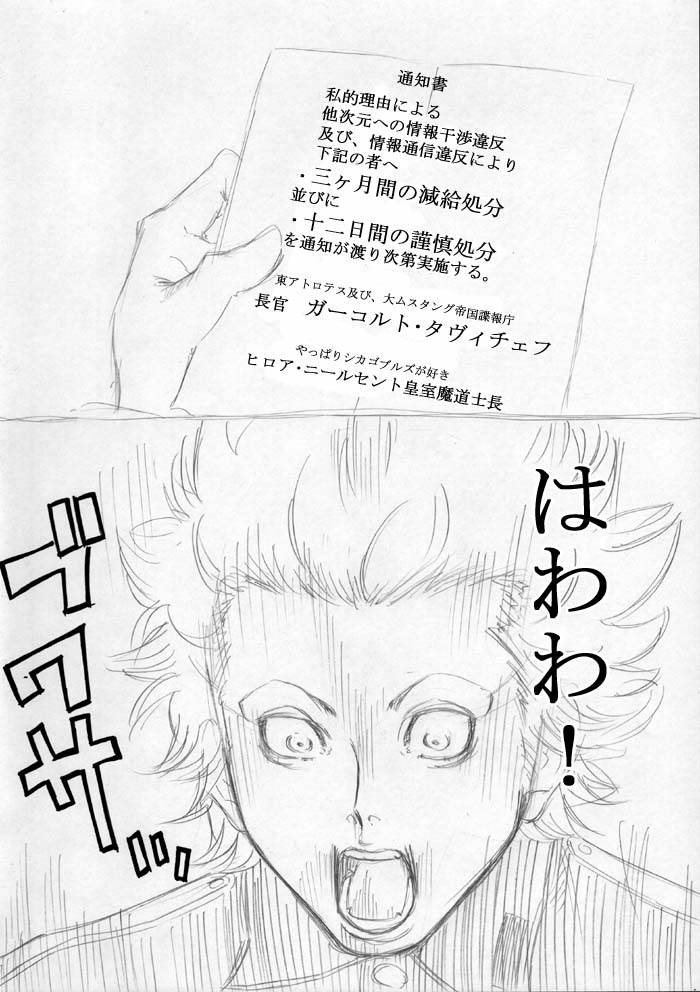 通知書
私的理由による
他次元への情報干渉違反
及び、情報通信違反により
下記の者へ
・三ヶ月間の減給処分
並びに
・十二日間の謹慎処分
を通知が渡り次第実施する。
東アトロテス及び、大ムスタング帝国諜報庁
長官 ガーコルト・タヴィチェフ
やっぱりシカゴブルズが好き
ヒロア・ニールセント皇室魔道士長
はわわ！